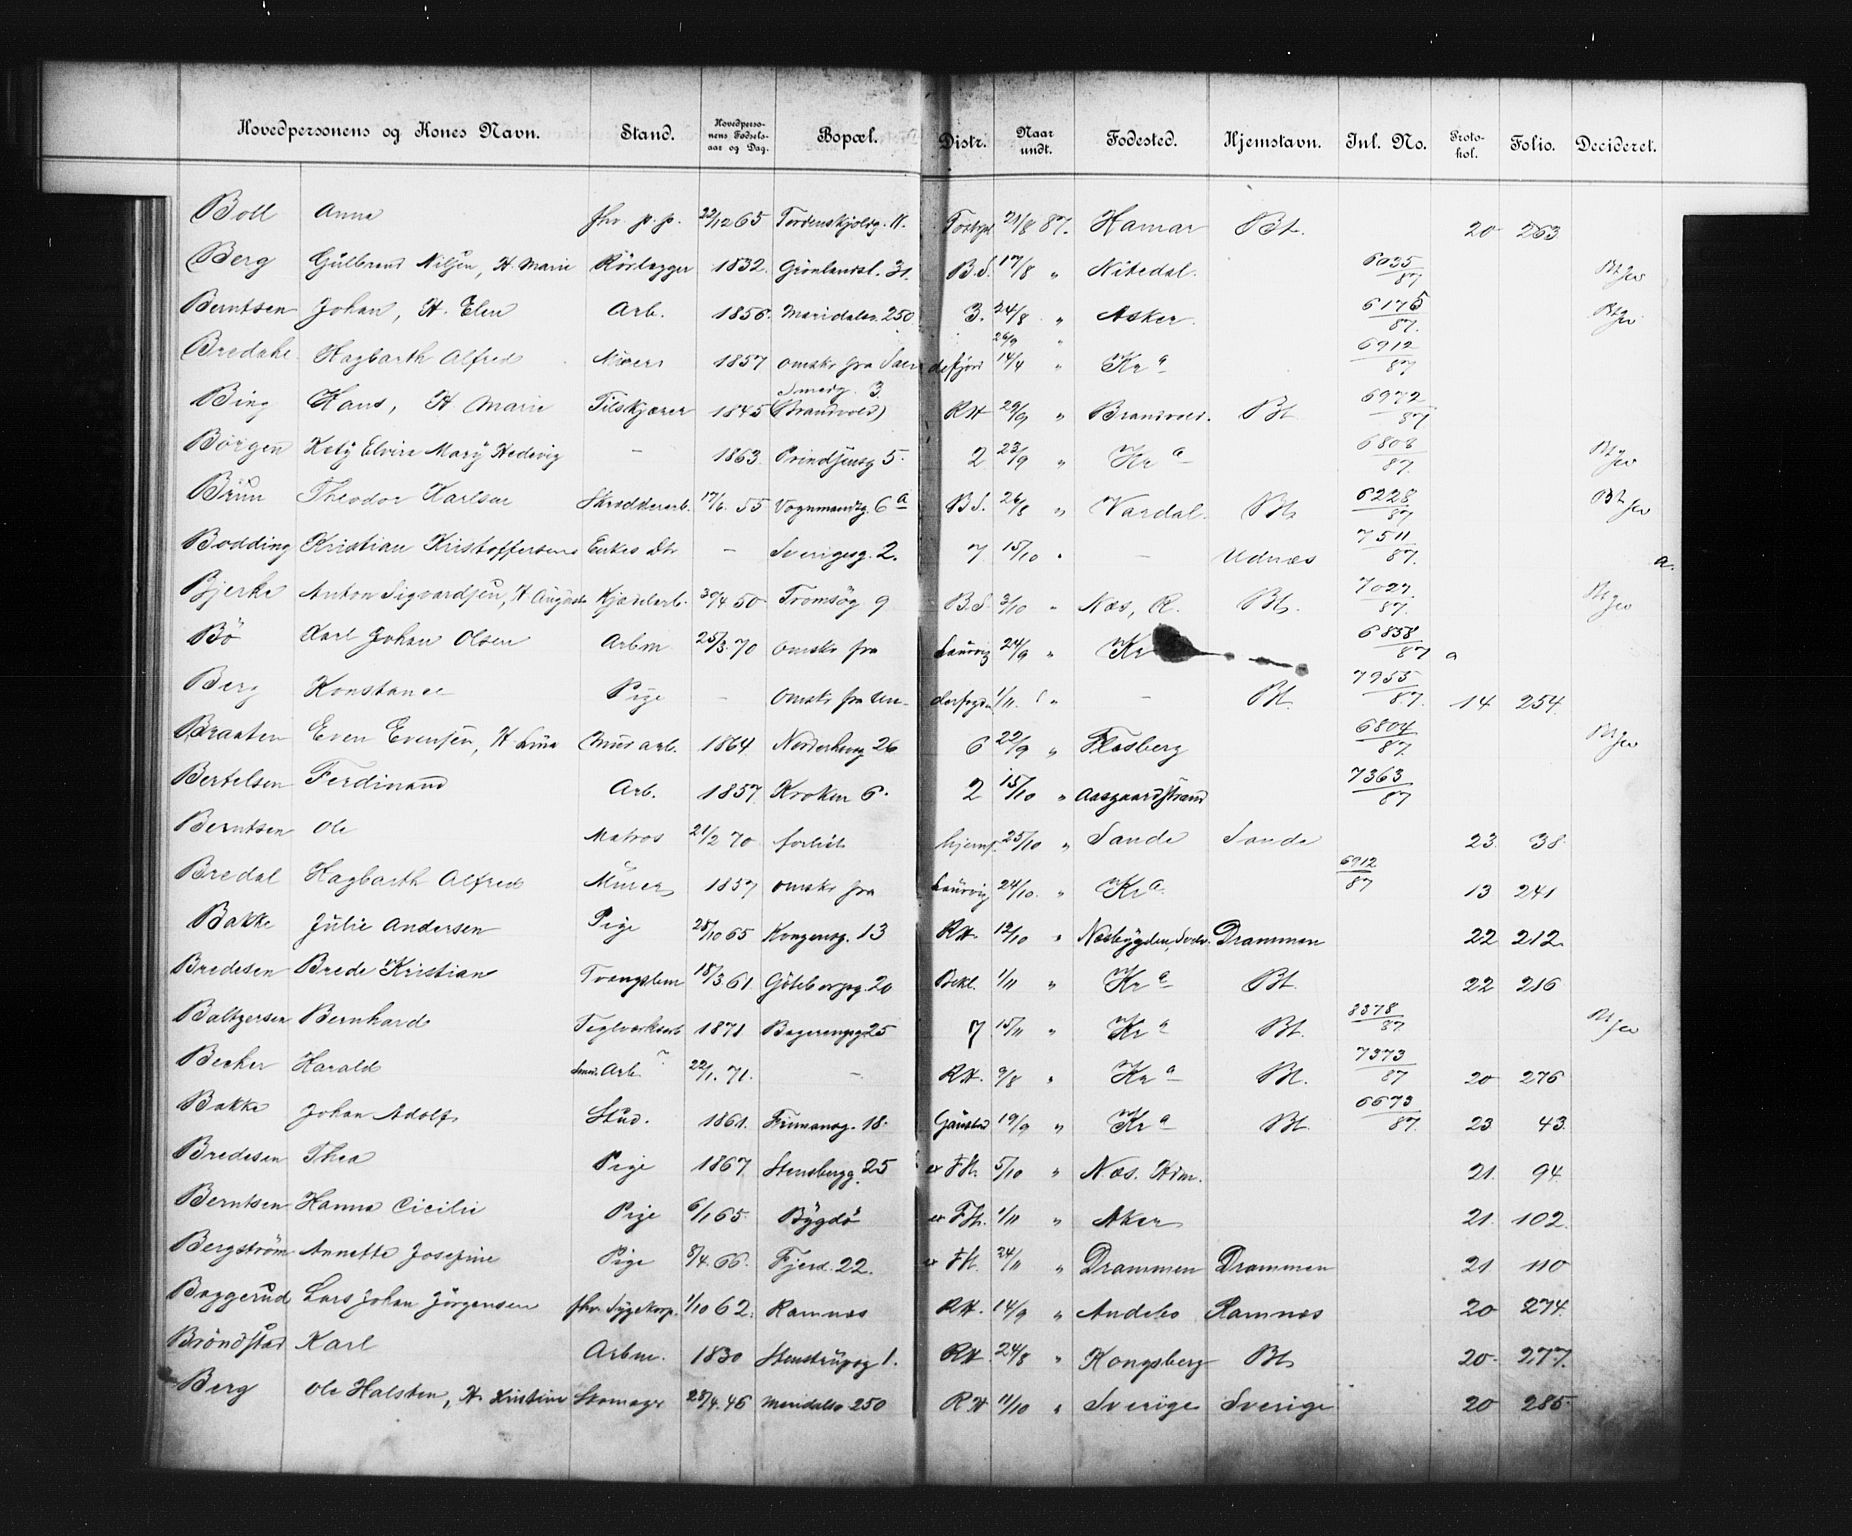 Hovedpersonens og Kones Navn. Stand. Hovedperso-nens Fødsels-aar og Dag. Bopæl. Distr. Naar undt. Fødested. Hjemstavn. Inl. No. Proto-kol. Folio. Decideret.
Boll Anna fhv. p.p. 22/12 65 Tordenskjoldsg. 11. 21/8 87. Hamar Bt. 20 263
Berg Gulbrand Nilsen, H. Marie Rörlægger 1832. Grönlandsl. 31. B.S. 17/8 " Nitedal. 6035/87
Berntsen Johan, H. Elen Arb. 1856. Maridalsv. 250 3. 24/8 " Asker. 6175/87.
Bredahl Hagbarth Alfred Murer 1857 omsks fra Sandefjord 26/9 14/4 " Kra 6912/87
Bing Hans, H Marie Filskjærer 1845 Smedg. 3 (Brandvold) RH 29/9 " Brandvold. Bt 6972/87
Börgen Kety Elvire Mary Hedevig – 1863. Prindsensg 5. 2 23/9 " Kra 6808/87.
Brun Theodor Karlsen Skrædderarb. 17/6. 55 Vognmandsg. 6a B.S. 26/8 " Vardal. Bt 6228/87 Bt
Bodding Kristian Kristoffersens Enkes Dtr – Sverigesg. 2. 7 15/10 " – Udnæs 7511/87. a.
Bjerke Anton Sigvardsen, H Augusta Kjedelarb. 30/4 50 Tromsög 9 B.S. 3/10 " Næs, R. Bt. 7027/87.
Bö Karl Johan Olsen Arbm 25/3. 70 omsks fra Laurvig 24/9 " Kr 6858/87 a
Berg Konstance Pige – omsks fra 1/11 " – Bt. 7955/87. 14 254
Braaten Even Evensen, H. Lina Murarb. 1864. Norderhovg 26 6 22/9 " Flesberg 6804/87
Bertelsen Ferdinand Arb. 1857. Kroken 6. 2 15/10 " Aasgaardstrand 7363/87
Berntsen Ole Matros 21/2 70 forlist hjemf. 25/10 " Sande Sande 23. 38
Bredal Hagbarth Alfred Murer 1857 omsks fra Laurvig 24/10. " Kra. 6912/87 13 241
Bakke Julie Andersen Pige 28/10 65 Kongensg. 13 RH. 12/10 " Næsbygden, Drammen 22 212.
Bredesen Brede Kristian Tvangslem 18/3 61 Göteborgsg. 20 Bekl. 1/11 " Kra Bt. 22 216
Baltzersen Bernhard Teglværksarb 1871. Bagerengsg 25 7. 15/11 " Kra Bt. 8378/87
Becker Harald Arb. 22/1. 71. – RH. 9/8 " Kra Bt. 7373/87 20 276
Bakke Johan Adolf Stud. 1861. Firmansg. 18. Gaustad 19/9 " Kra Bt. 6673/87. 23 43.
Bredesen Thea Pige 1867. Stensbergg. 25 FH. 5/10 " Næs. Hdm. 21. 94
Berntsen Hanna Cicilie Pige 6/1 65. Bygdö FH. 1/11 " Aker 21. 102.
Bergström Annette Josefine Pige 8/4. 66. Fjerd. 22. FH. 24/11 " Drammen Drammen 21 110
Baggerud Lars Johan Jörgensen fhv. Sygekorp. 1/10 62. Ramnæs RH. 14/9 " Andebo Ramnæs 20 274.
Bröndstad Karl Arbm. 1830 Stenstrupsg 1. RH. 24/8 " Kongsberg Bt 20 277.
Berg Ole Halsten, H. Kristine Skomager 28/4. 46 Maridalsv 250 RH 11/10 " Sverige Sverige 20 285.